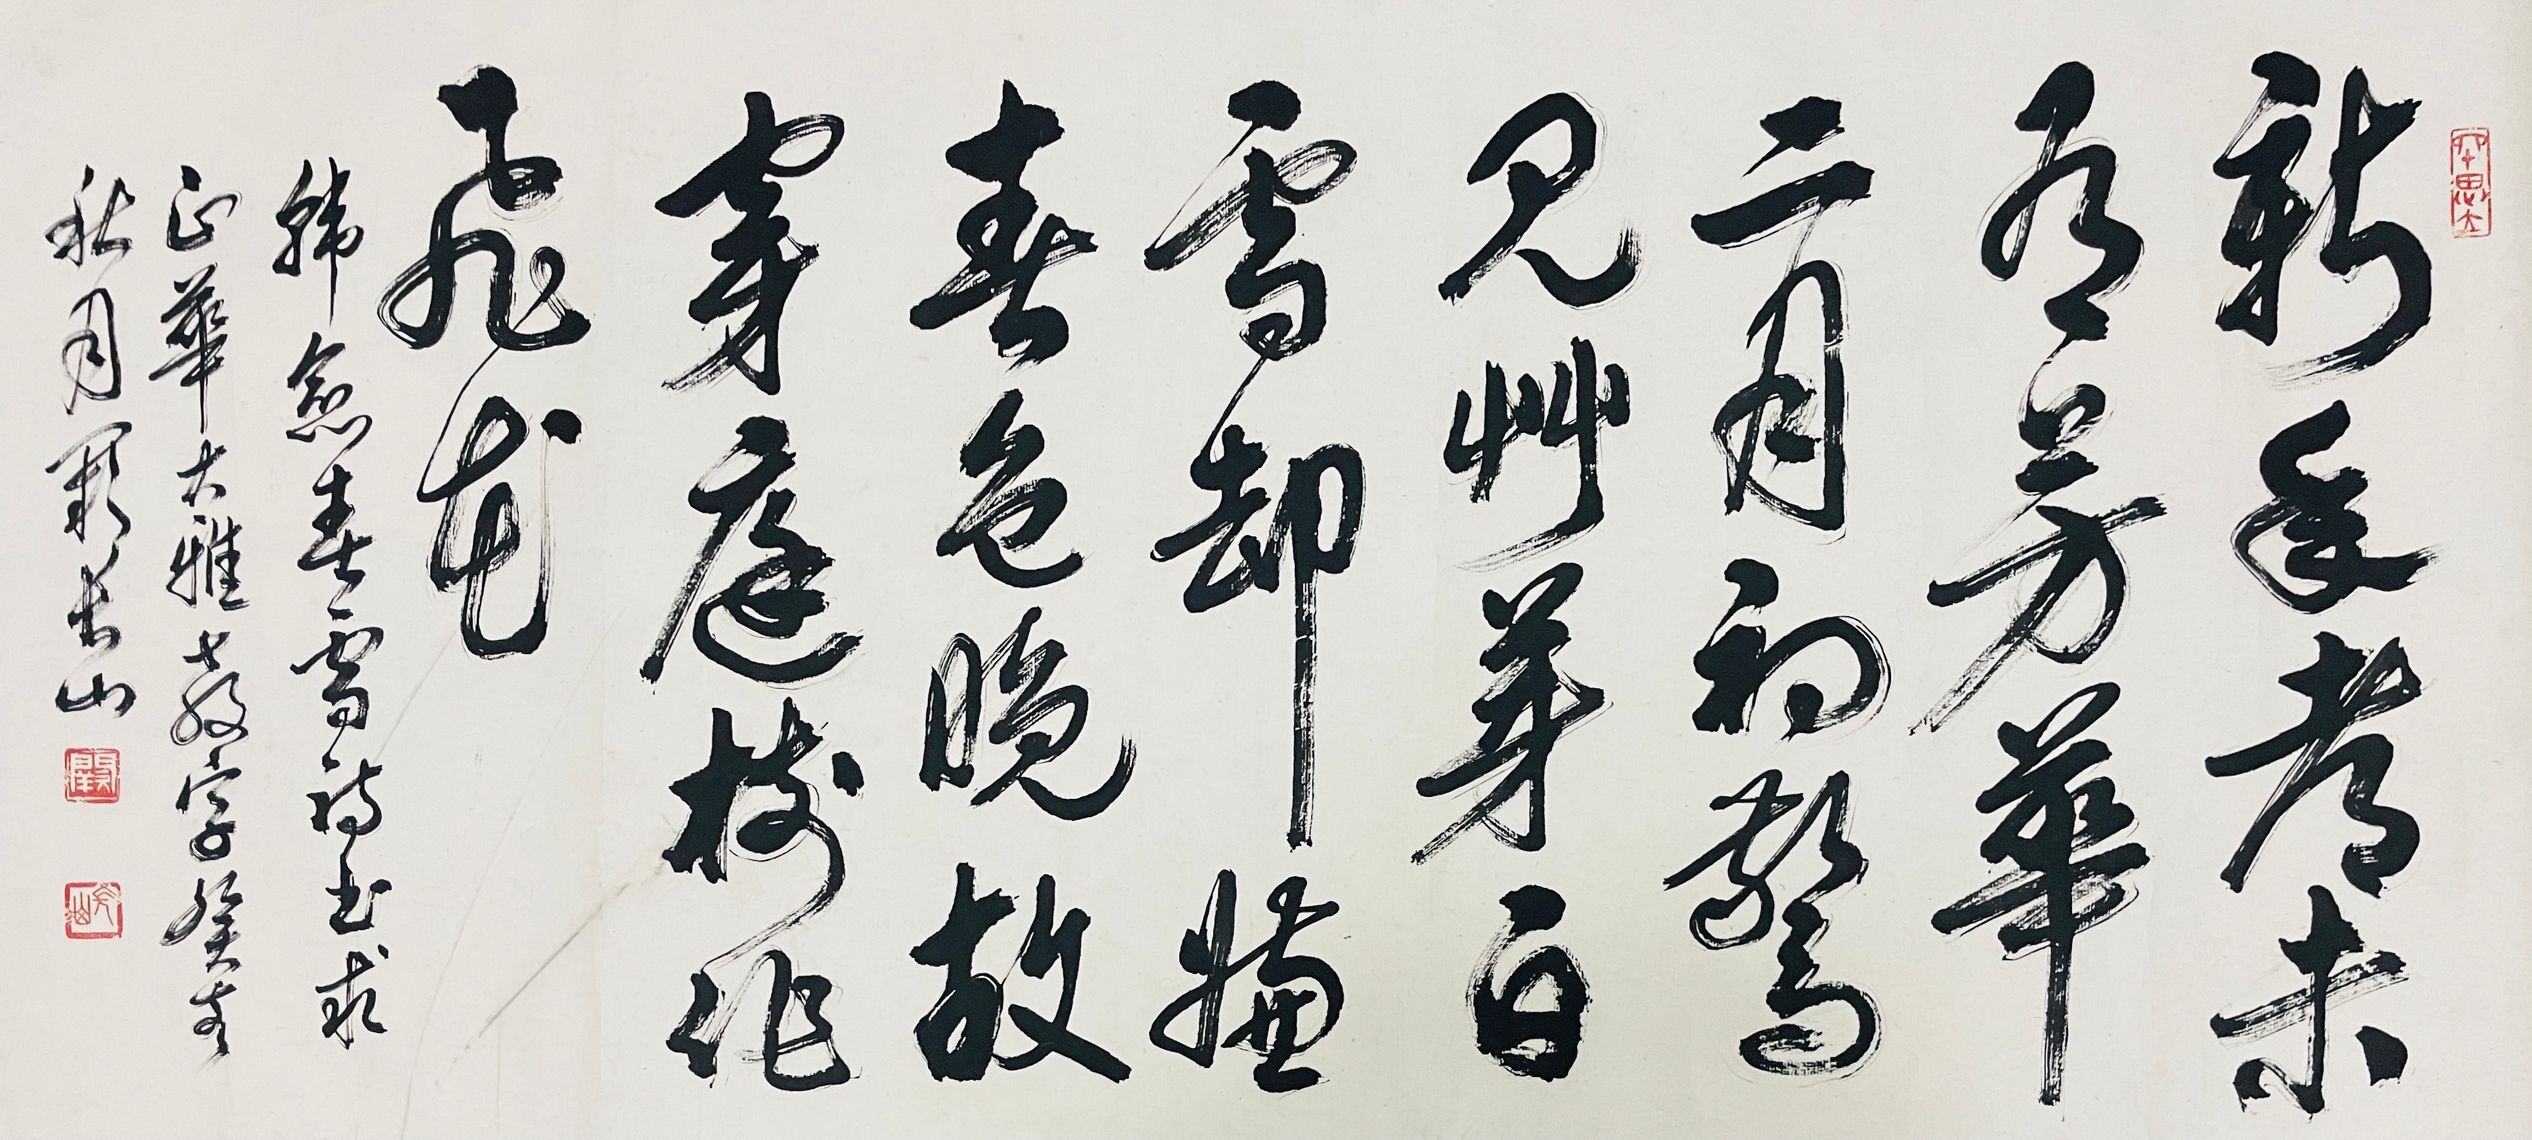 新年都未
有芳華
二月初驚
見艸芽白
雪却嫌
春色晚故
穿庭樹作
飛花
韓愈春雪詩書求
正華大雅士教字癸
秋月闞長山